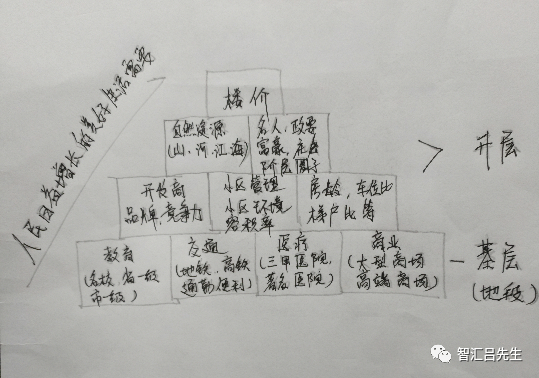 人民日益增长的美好生活需要
楼价
自然资源
(山、河、江海)
名人、政要
富豪、
阶层圈子
开发商
品牌、竞争力
小区管理
小区环境
容积率
房龄、车位比
梯户比等
教育
(名校、省一级
市一级)
交通
(地铁、高铁
通勤便利)
医疗
(三甲医院
著名医院)
商业
(大型商场
高端商场)
> 升层
- 基层
(地段)
智汇吕先生